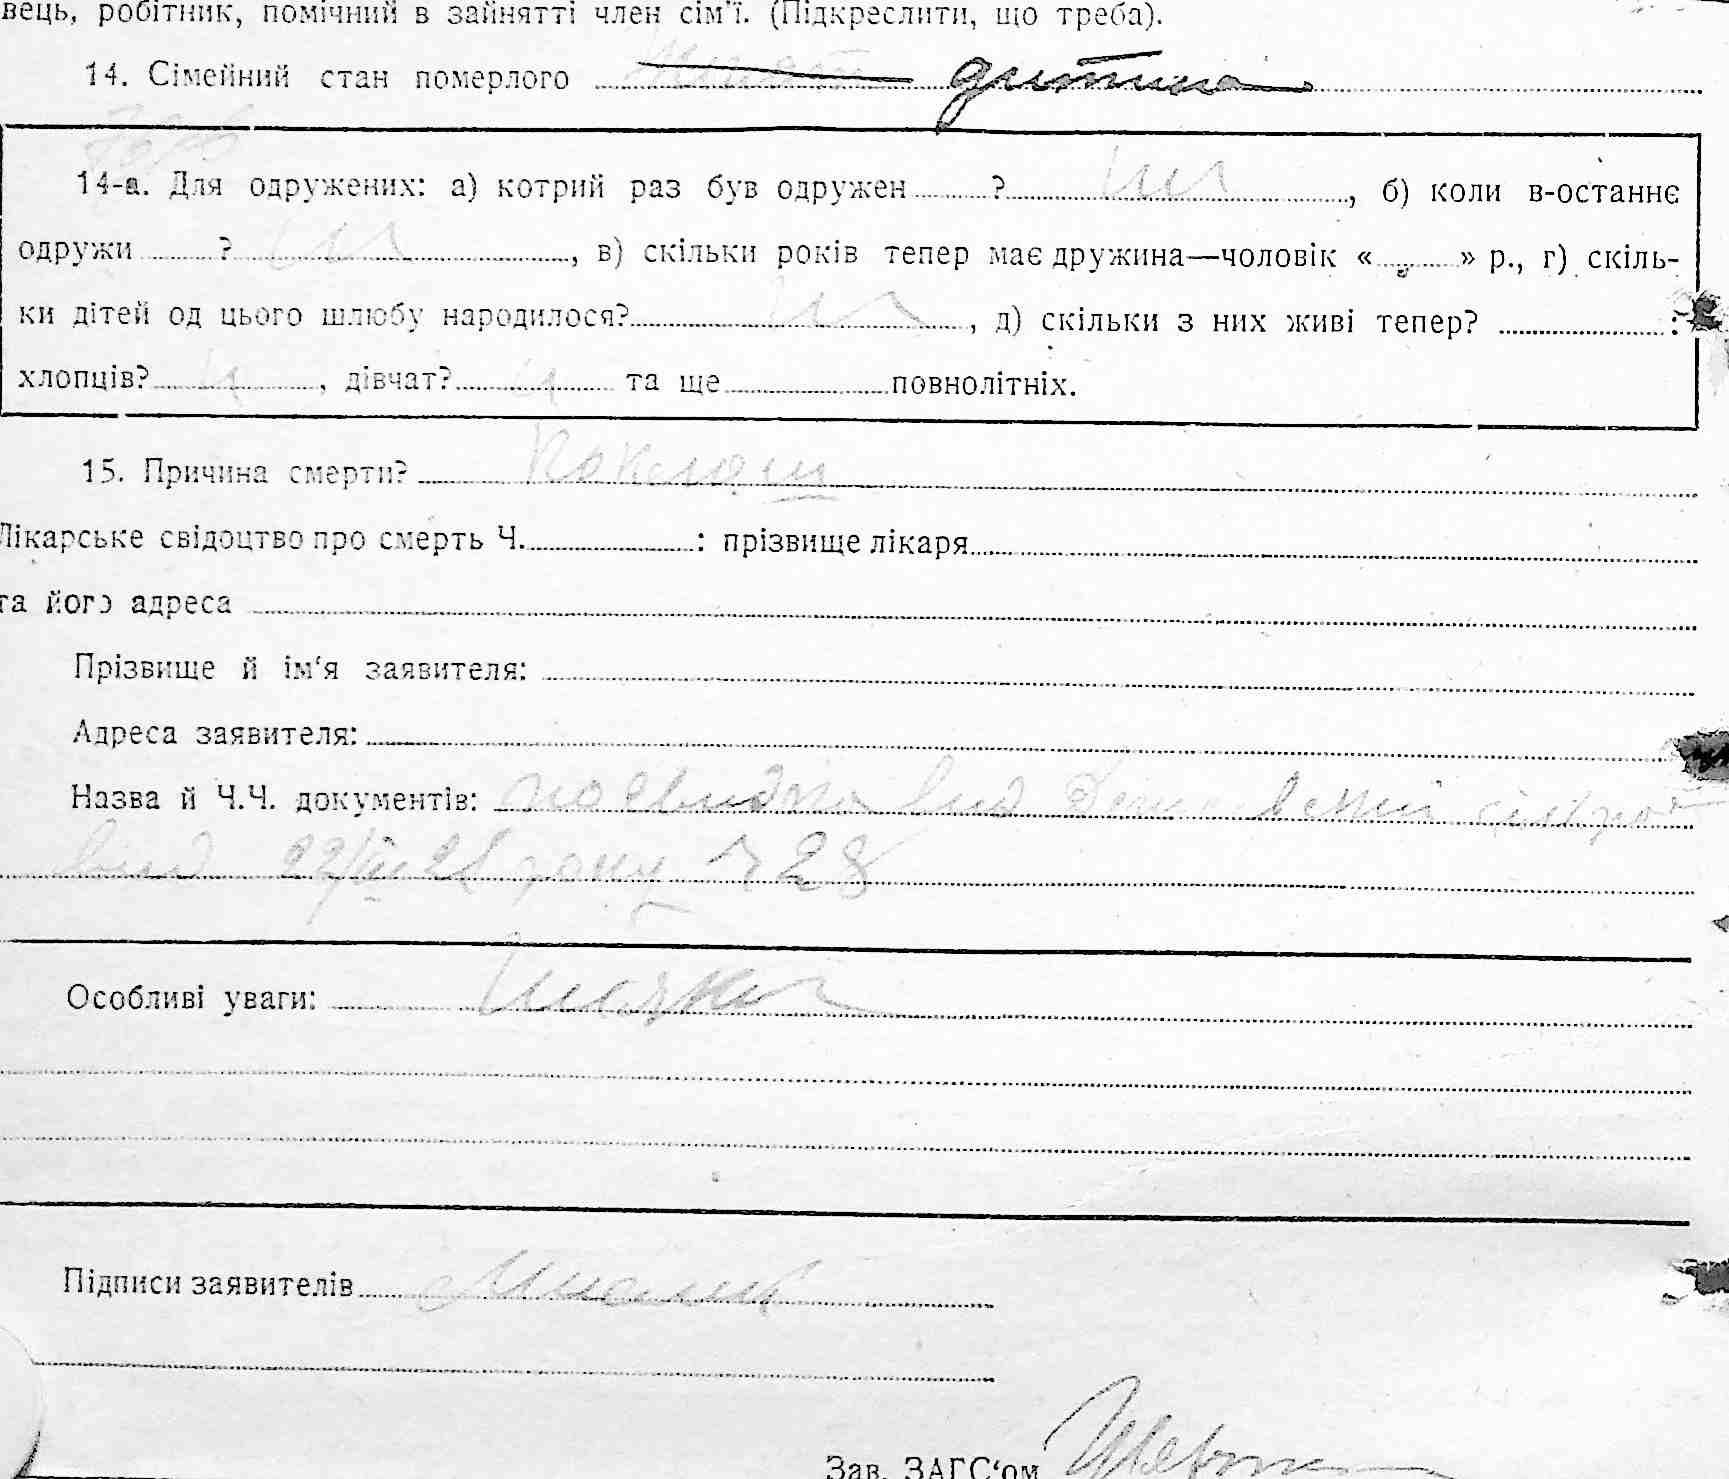 вець, робітник, помічний в зайнятті член сім'ї. (Підкреслити, що треба).
14. Сімейний стан померлого дитина
14-а. Для одружених: а) котрий раз був одружен ? , б) коли в-останнє
одружи ? , в) скільки років тепер має дружина—чоловік « » р., г) скіль-
ки дітей од цього шлюбу народилося? , д) скільки з них живі тепер? :
хлопців? , дівчат? та ще повнолітніх.
15. Причина смерти? Коклюш
Лікарське свідоцтво про смерть Ч. : прізвище лікаря
та його адреса
Прізвище й ім'я заявителя:
Адреса заявителя:
Назва й Ч.Ч. документів:
від року 28
Особливі уваги:
Підписи заявителів
Зав. ЗАГС'ом